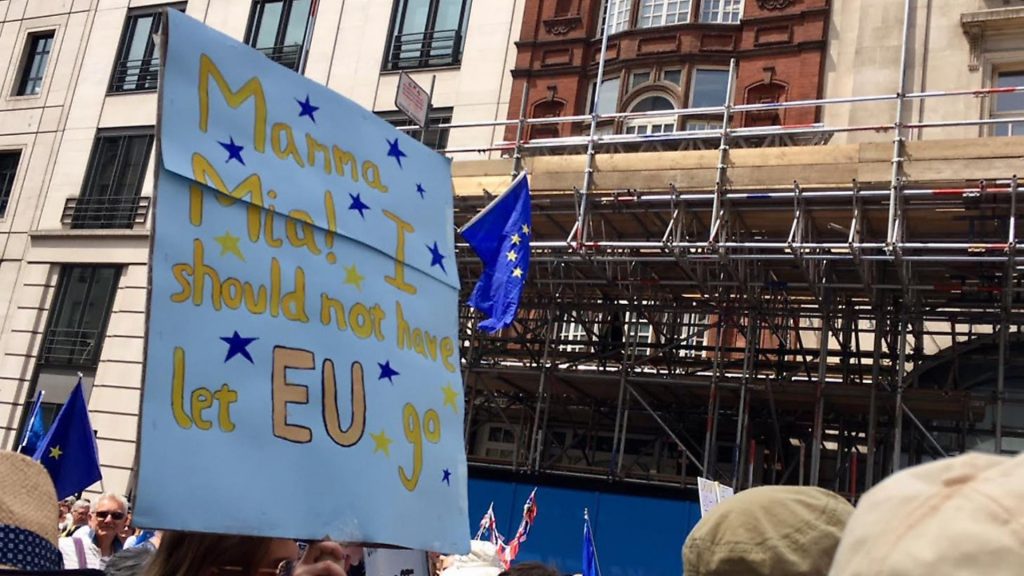 Mamma
Mia! I
should not have
let EU go